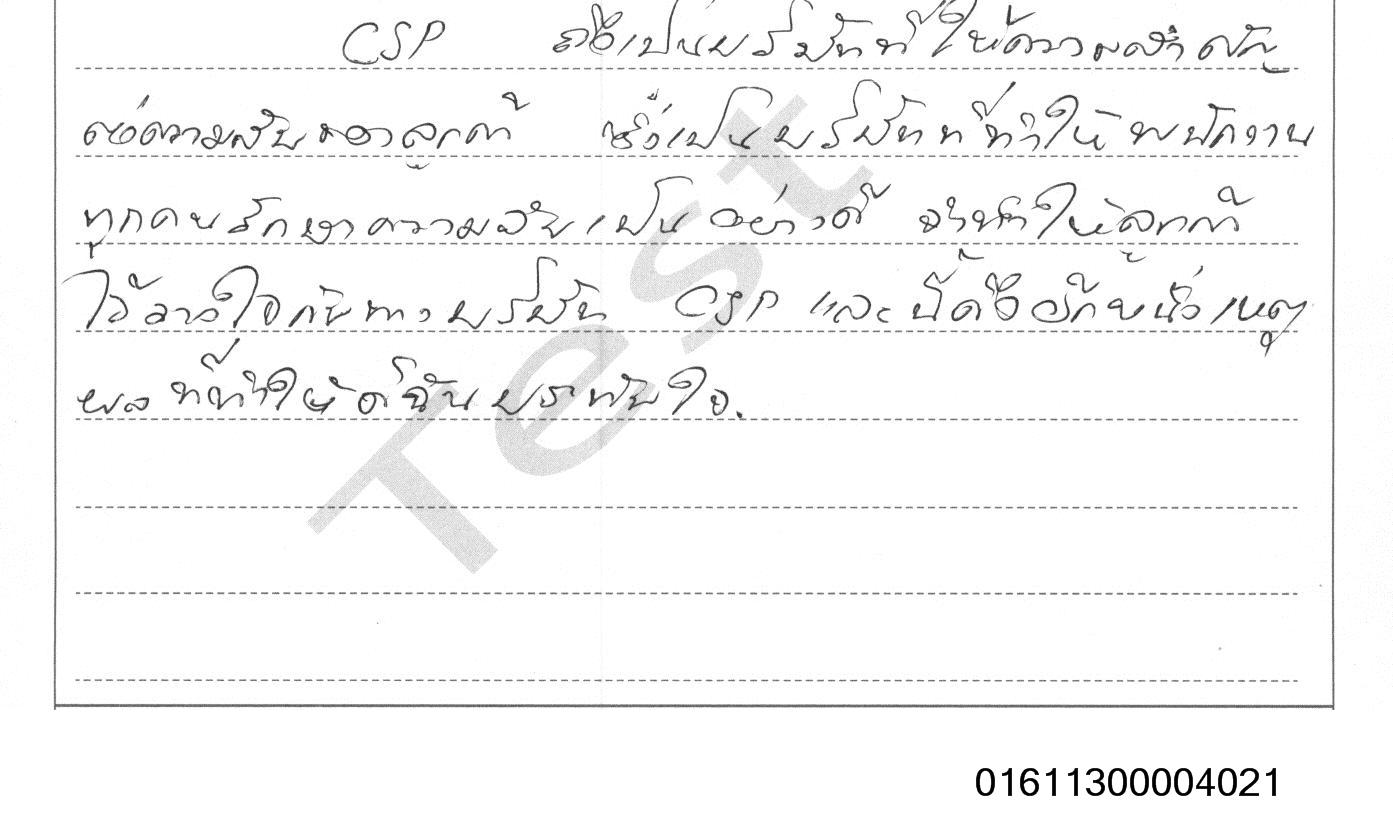 CSP ถือเป็นบริษัทที่ให้ความสำคัญ
ต่อความลับของลูกค้า ซึ่งเป็นบริษัทที่ทำให้พนักงาน
ทุกคนรักษาความลับเป็นอย่างดี จำทำให้ลูกค้า
ไว้วางใจกับทางบริษัท CSP และนี่คืออีกหนึ่งเหตุ
ผลที่ทำให้ดิฉันประทับใจ.
Test
01611300004021